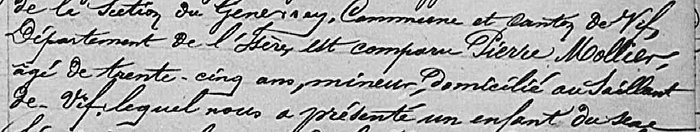 de la Section du Genevrey, Commune et Canton de Vif,
Département de l'Isère, est comparu Pierre Mollier,
âgé de trente-cinq ans, mineur, domicilié au Saillant
de-Vif, lequel nous a présenté un enfant du sexe